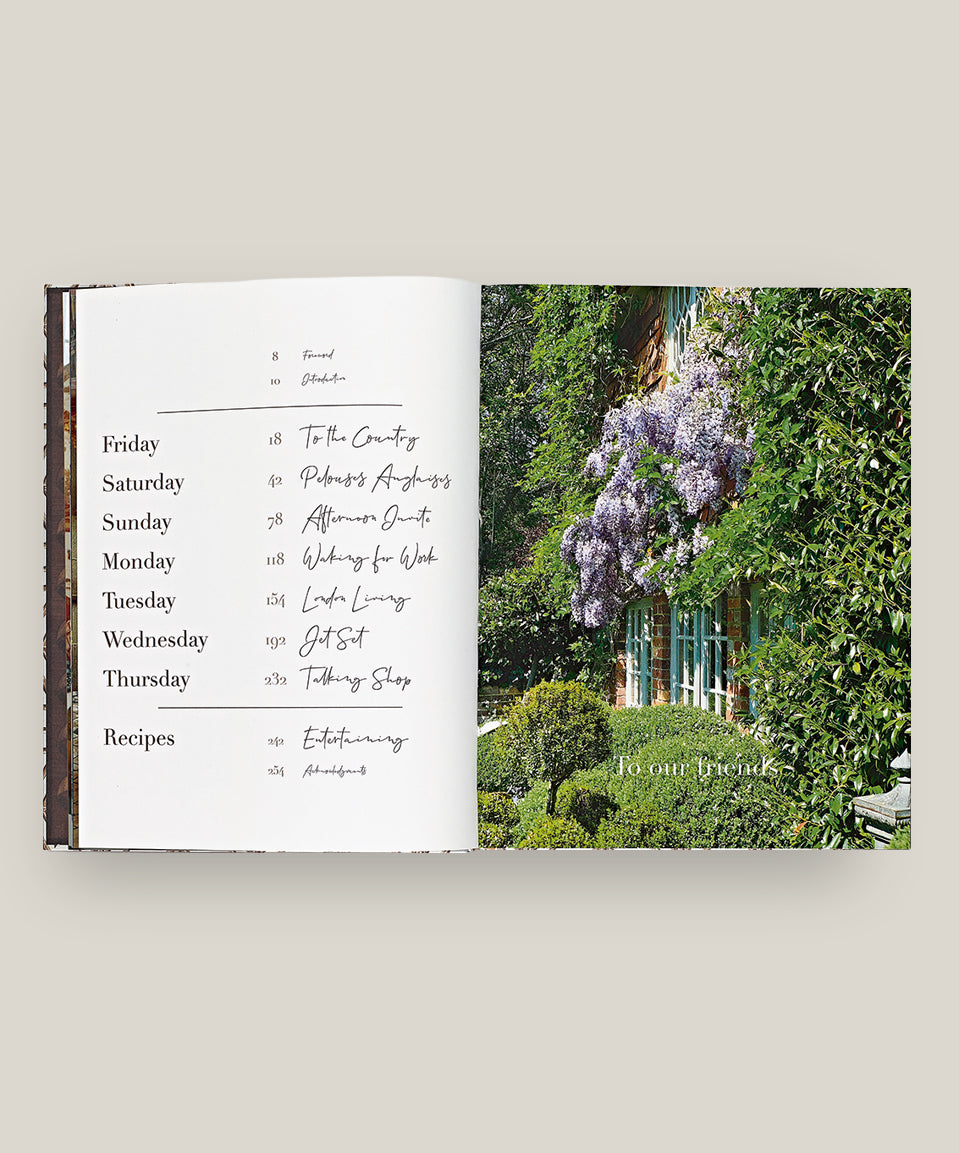 8 Foreword
10 Introduction
Friday 18 To the Country
Saturday 42 Pelouses Anglaises
Sunday 78 Afternoon Invite
Monday 118 Waking for Work
Tuesday 154 London Living
Wednesday 192 Jet Set
Thursday 232 Talking Shop
Recipes 242 Entertaining
254 Acknowledgments
To our friends